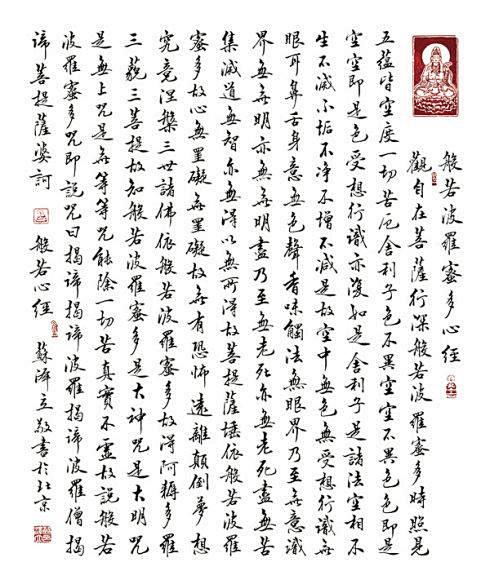 般若波羅蜜多心經
觀自在菩薩行深般若波羅蜜多時照見
五蘊皆空度一切苦厄舍利子色不異空空不異色色即是
空空即是色受想行識亦復如是舍利子是諸法空相不
生不滅不垢不净不增不減是故空中無色無受想行識無
眼耳鼻舌身意無色聲香味觸法無眼界乃至無意識
界無無明亦無無明盡乃至無老死亦無老死盡無苦
集滅道無智亦無得以無所得故菩提薩埵依般若波羅
蜜多故心無罣礙無罣礙故無有恐怖遠離顛倒夢想
究竟涅槃三世諸佛依般若波羅蜜多故得阿耨多羅
三藐三菩提故知般若波羅蜜多是大神咒是大明咒
是無上咒是無等等咒能除一切苦真實不虛故說般若
波羅蜜多咒即說咒曰揭諦揭諦波羅揭諦波羅僧揭
諦菩提薩婆訶 般若心經 蘇澤立敬書於北京